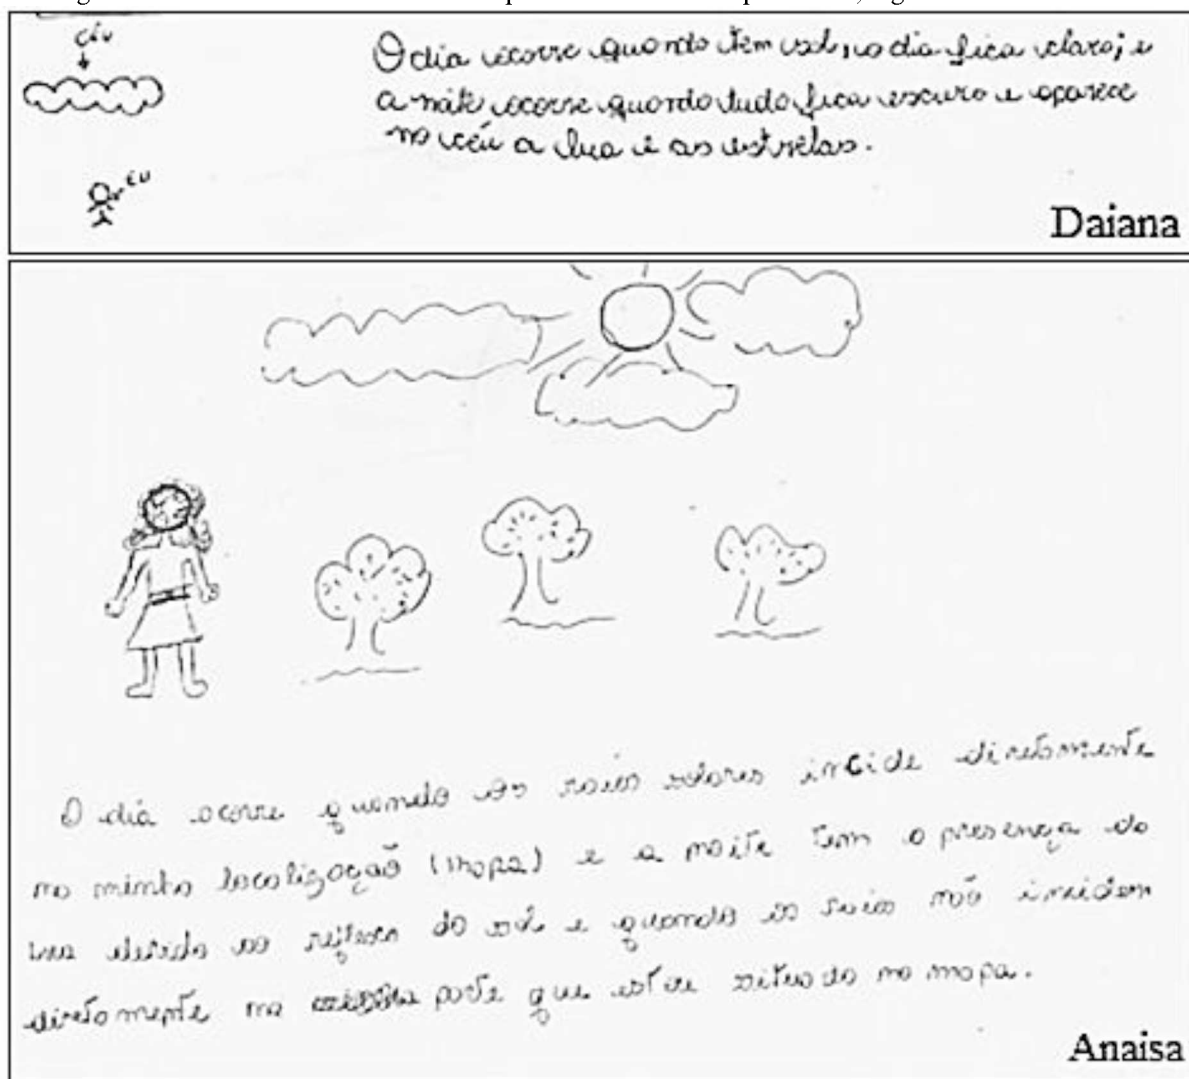 céu
O dia ocorre quando tem sol, no dia fica claro; e
a noite ocorre quando tudo fica escuro e aparece
no céu a lua e as estrelas.
eu
Daiana
O dia ocorre quando os raios solares incide diretamente
na minha localização (mapa) e a noite tem a presença da
lua devido ao reflexo do sol e quando os raios não incidem
diretamente na parte que estou situado no mapa.
Anaisa